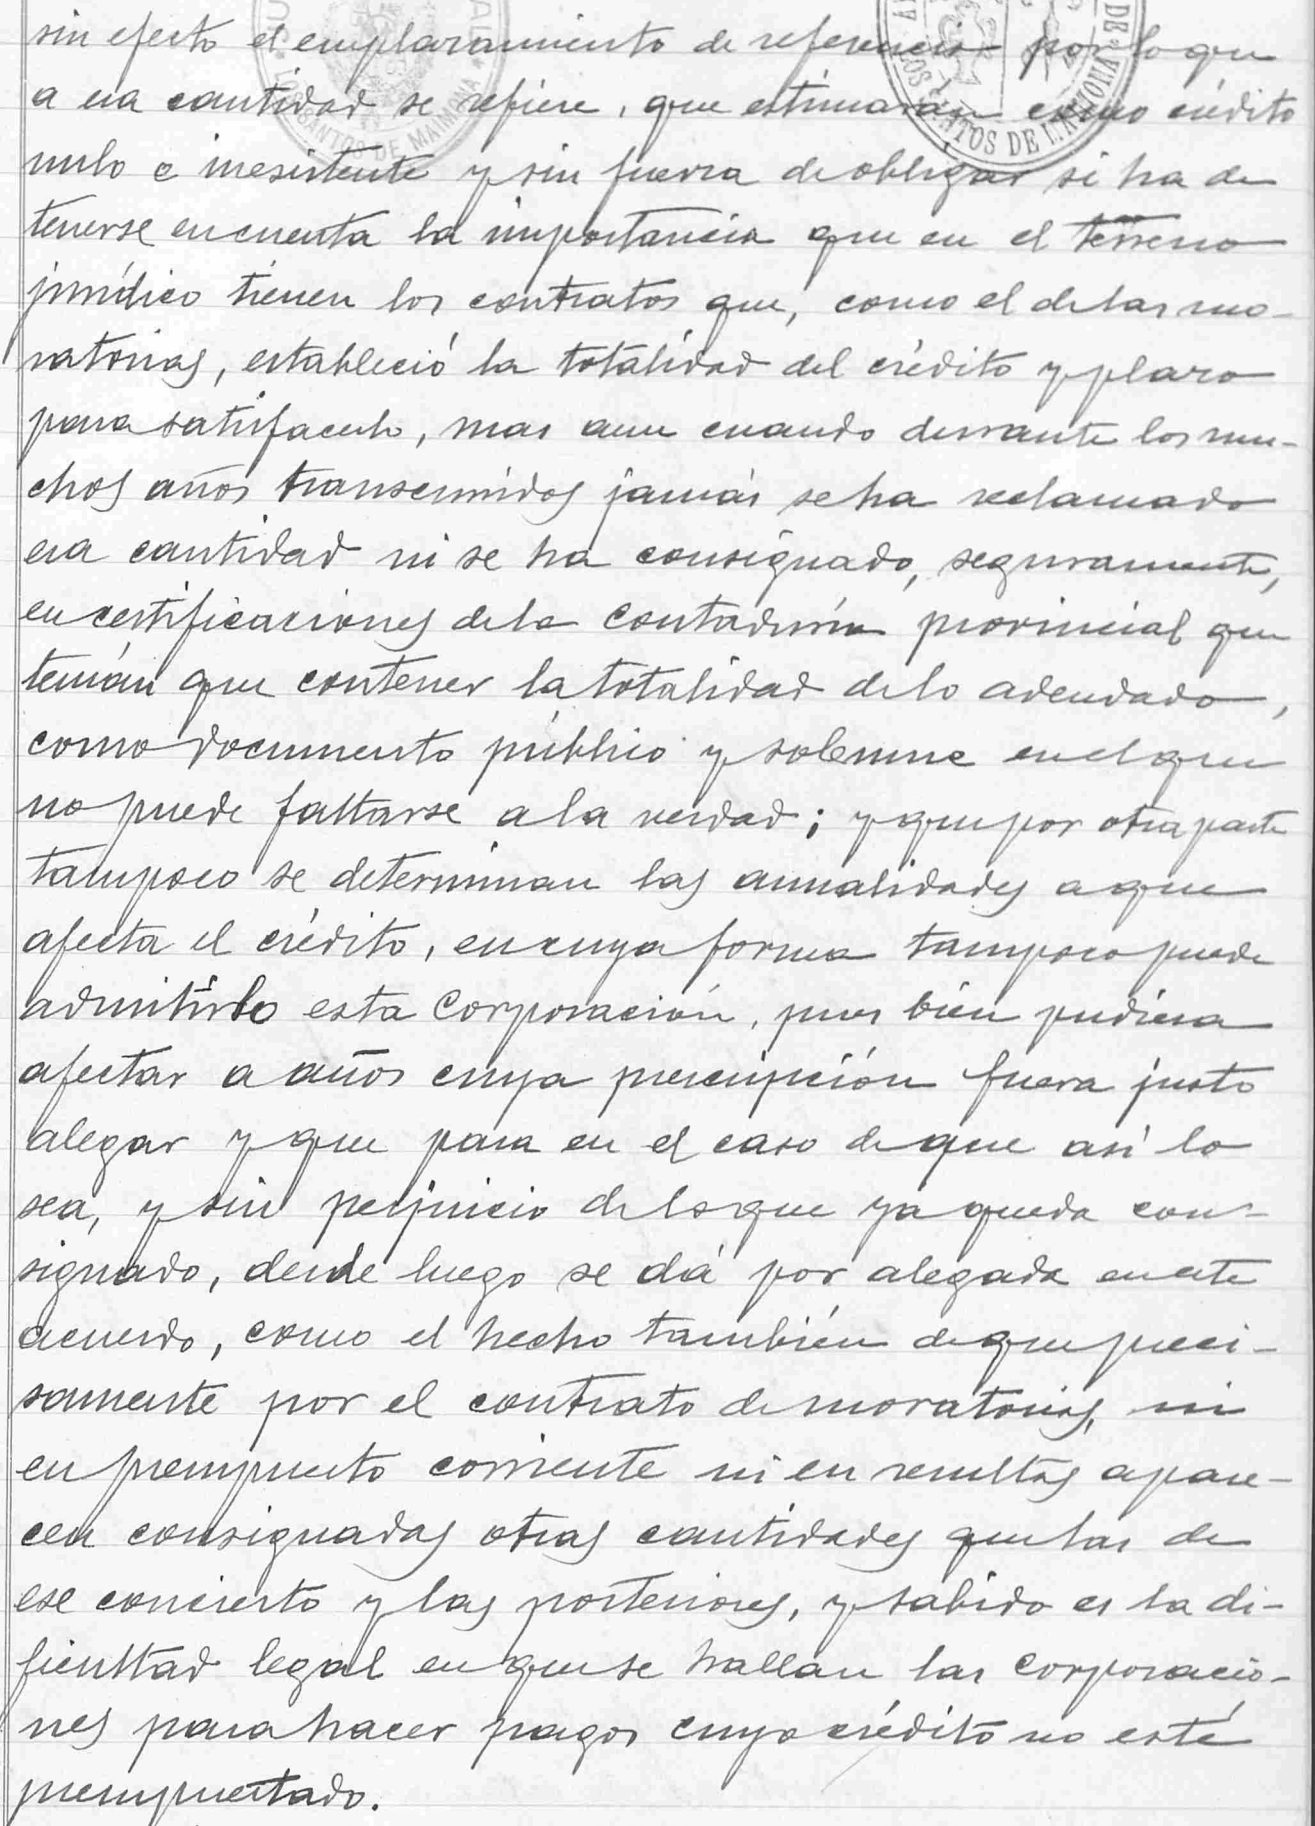 sin efecto el emplazamiento de referencia por lo que
a esa cantidad se refiere, que estimarán como crédito
nulo e inesistente y sin fuerza de obligar si ha de
tenerse en cuenta la importancia que en el terreno
jurídico tienen los contratos que, como el de las mo-
ratorias, estableció la totalidad del crédito y plazo
para satisfacerlo, mas aun cuando durrante los mu-
chos años transcurridos jamás se ha reclamado
esa cantidad ni se ha consignado, seguramente,
en certificaciones de la contaduría provincial que
tenían que contener la totalidad de lo adeudado,
como documento público y solemne en el que
no puede faltarse a la verdad; y que por otra parte
tampoco se determinan las anualidades a que
afecta el crédito, en cuya forma tampoco puede
admitirlo esta Corporación, pues bien pudiera
afectar a años cuya prescripción fuera justo
alegar y que para en el caso de que así lo
sea, y sin perjuicio de lo que ya queda con-
signado, desde luego se dá por alegada en este
acuerdo, como el hecho también de que preci-
samente por el contrato de moratorias, ni
en presupuesto corriente ni en resultas apare-
cen consignadas otras cantidades que las de
ese concierto y las posteriores, y sabido es la di-
ficultad legal en que se hallan las corporacio-
nes para hacer pagos cuyo crédito no esté
presupuestado.
SANTOS DE MAIMONA